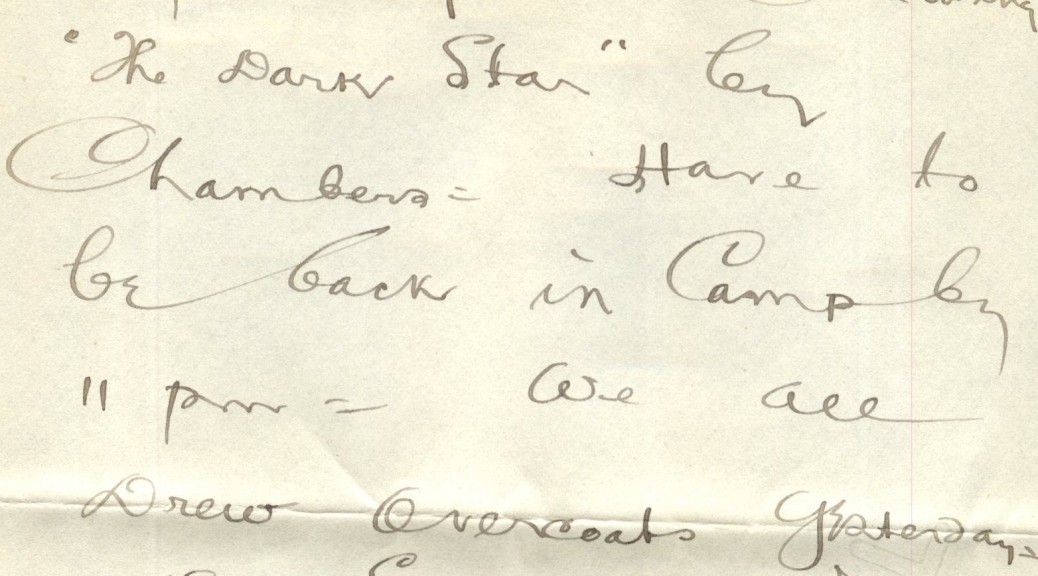 "The Dark Star" by
Chambers = Have to
be back in Camp by
11 pm = We all
Drew Overcoats Yesterday =